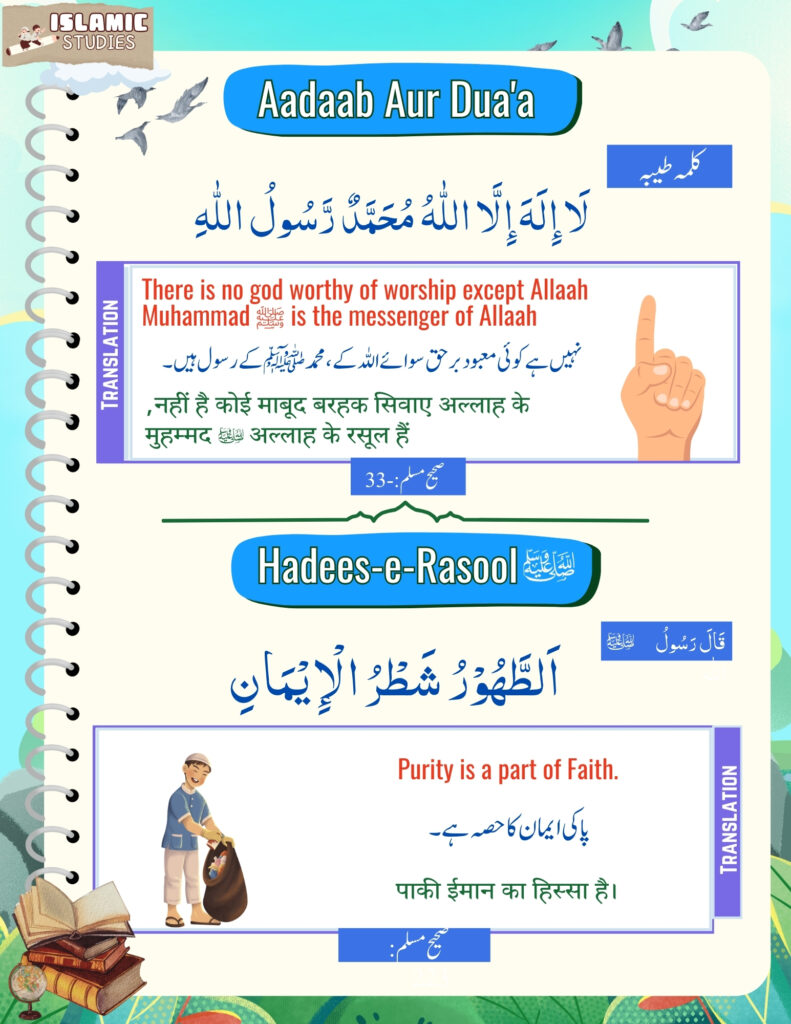 ISLAMIC
STUDIES
Aadaab Aur Dua'a
کلمہ طیبہ
لَا إِلَهَ إِلَّا اللهُ مُحَمَّدٌ رَّسُولُ اللهِ
TRANSLATION
There is no god worthy of worship except Allaah
Muhammad ﷺ is the messenger of Allaah
نہیں ہے کوئی معبود برحق سوائے اللہ کے، محمد ﷺ کے رسول ہیں۔
,नहीं है कोई माबूद बरहक सिवाए अल्लाह के
मुहम्मद ﷺ अल्लाह के रसूल हैं
صحیح مسلم:-33
Hadees-e-Rasool ﷺ
قَالَ رَسُولُ ﷺ
اَلطَّهُوْرُ شَطْرُ الْإِيْمَانِ
Purity is a part of Faith.
پاکی ایمان کا حصہ ہے۔
पाकी ईमान का हिस्सा है।
TRANSLATION
صحیح مسلم: